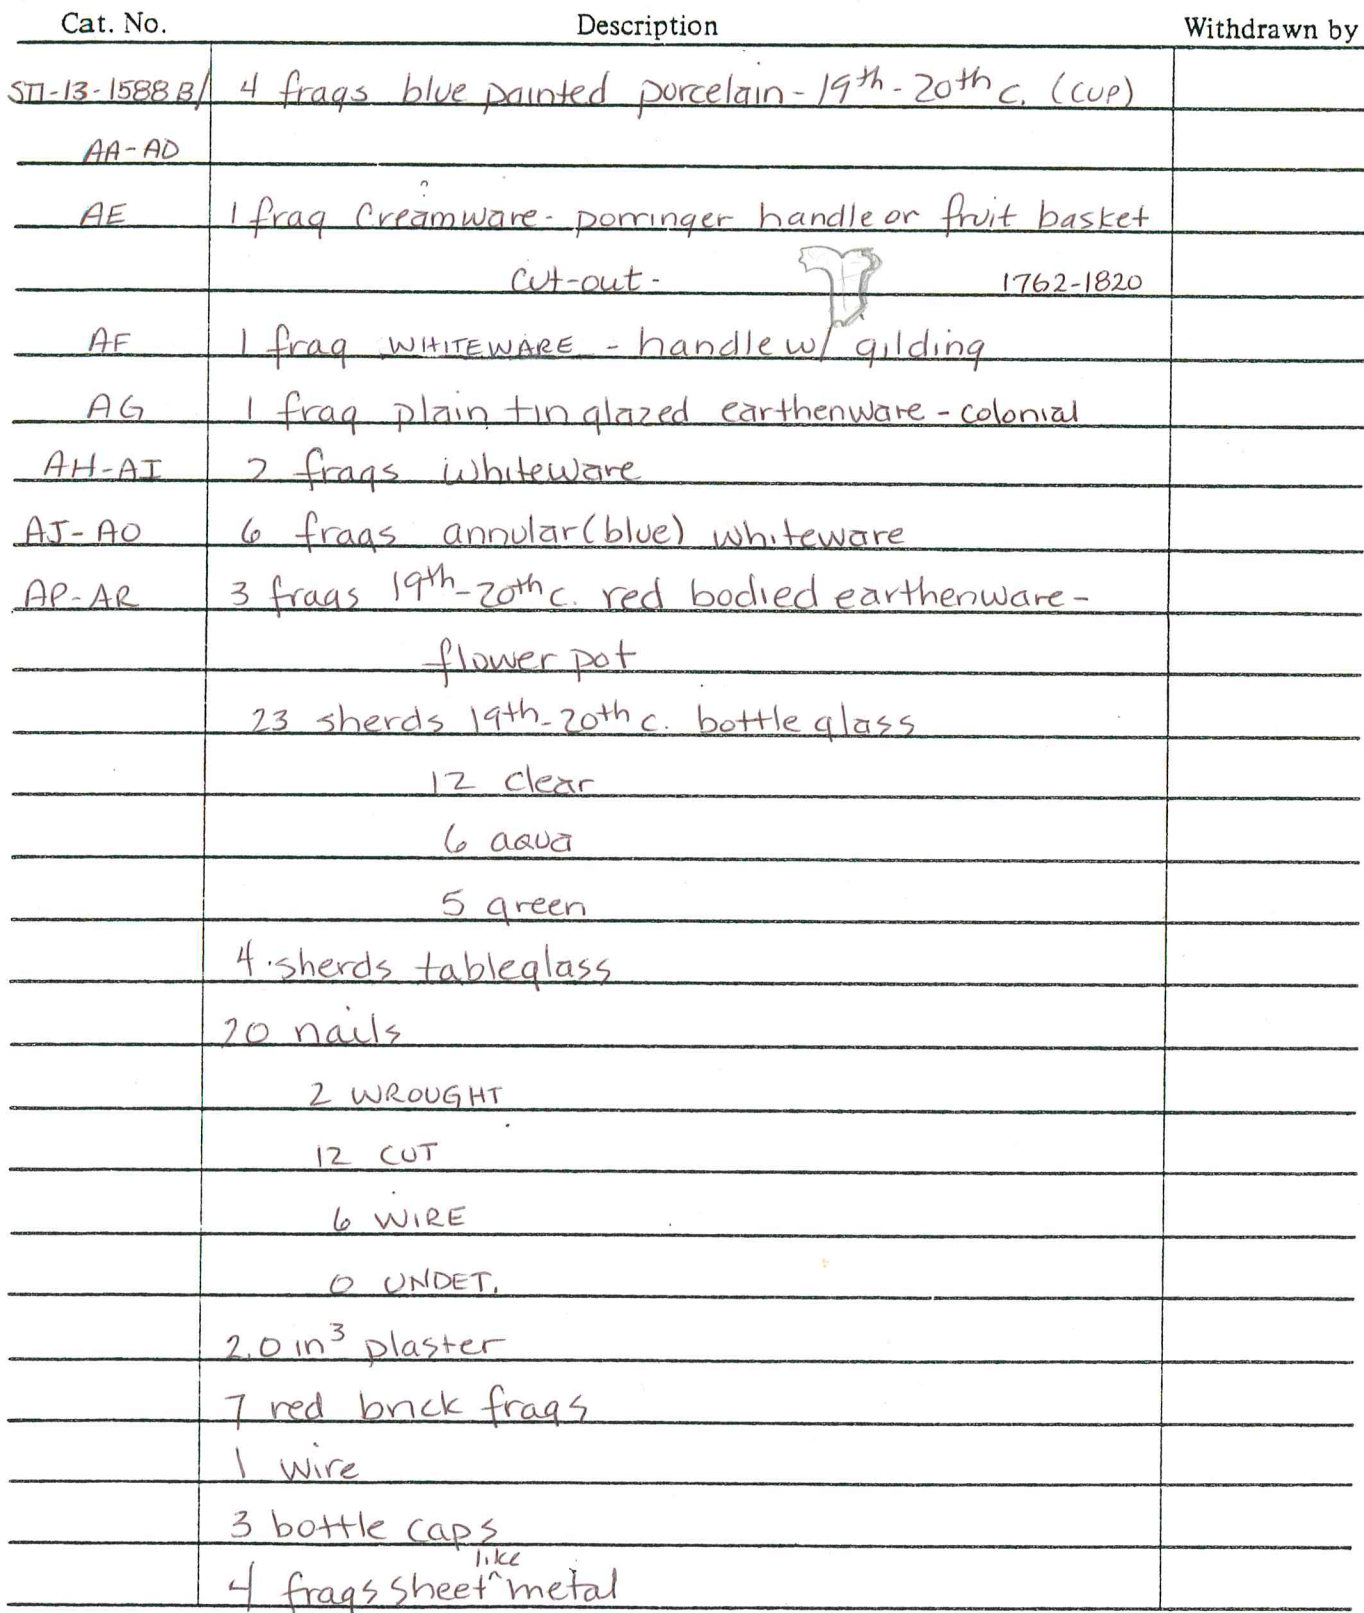 Cat. No. Description Withdrawn by
STI-13-1588B/ 4 frags blue painted porcelain - 19th - 20th c. (cup)
AA-AD
?
AE 1 frag Creamware - porringer handle or fruit basket
cut-out - 1762-1820
AF 1 frag WHITEWARE - handle w/ gilding
AG 1 frag plain tin glazed earthenware - colonial
AH-AI 2 frags whiteware
AJ-AO 6 frags annular (blue) whiteware
AP-AR 3 frags 19th-20th c. red bodied earthenware -
flower pot
23 sherds 19th-20th c. bottle glass
12 clear
6 aqua
5 green
4 sherds tableglass
20 nails
2 WROUGHT
12 CUT
6 WIRE
0 UNDET.
2.0 in³ plaster
7 red brick frags
1 wire
3 bottle caps
like
4 frags sheet^metal